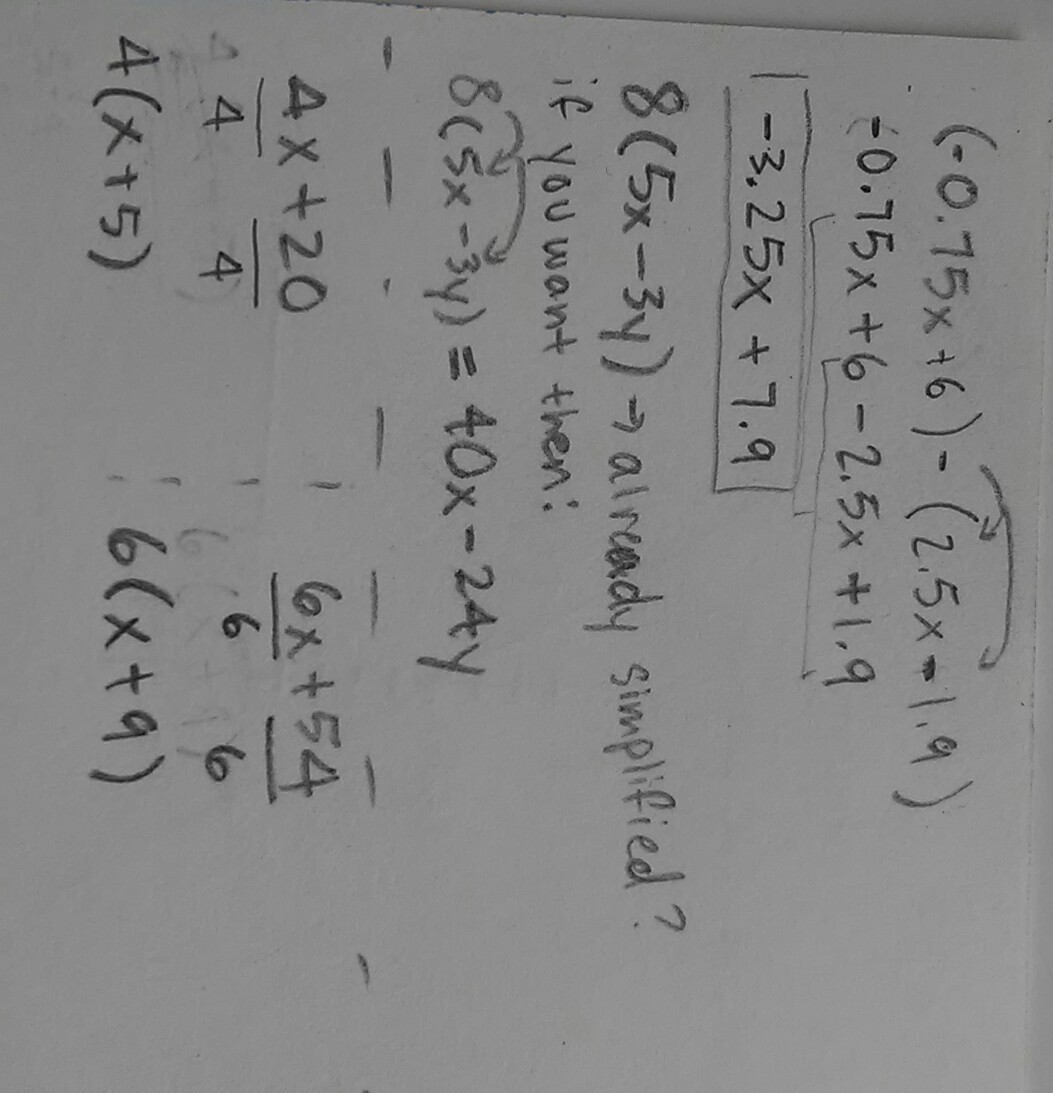 (-0.75x+6)-(2.5x-1.9)
-0.75x+6-2.5x+1.9
-3.25x+7.9
8(5x-3y)→already simplified?
if you want then:
8(5x-3y)=40x-24y
4x+20
4 4
4(x+5)
6x+54
6 6
6(x+9)